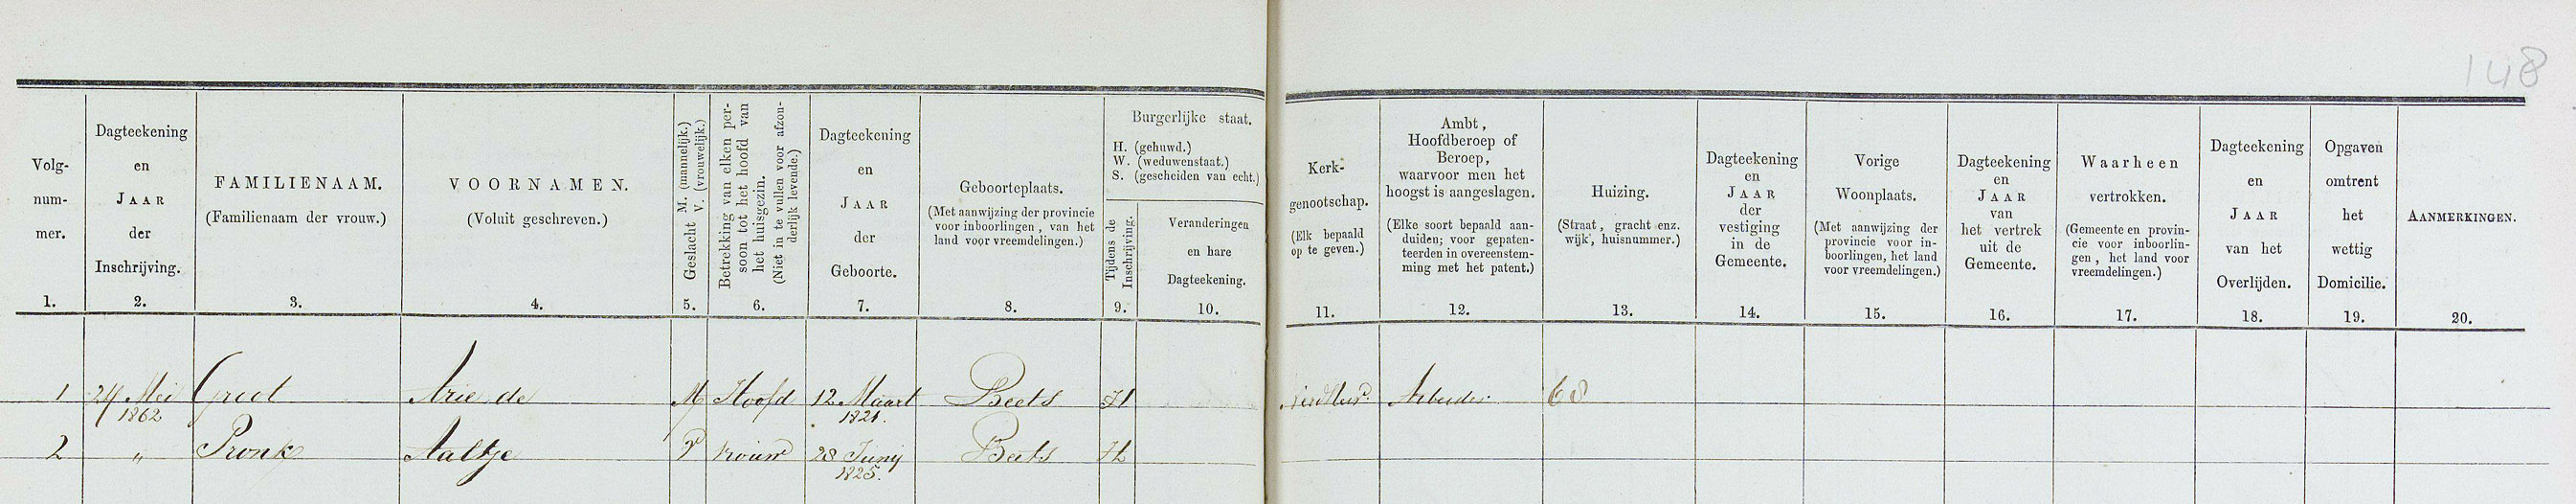 148
Volg-
num-
mer.
1.
Dagteekening
en
JAAR
der
Inschrijving.
2.
FAMILIENAAM.
(Familienaam der vrouw.)
3.
VOORNAMEN.
(Voluit geschreven.)
4.
Geslacht M. (mannelijk.)
V. (vrouwelijk.)
5.
Betrekking van elken per-
soon tot het hoofd van
het huisgezin.
(Niet in te vullen voor afzon-
derlijk levende.)
6.
Dagteekening
en
JAAR
der
Geboorte.
7.
Geboorteplaats.
(Met aanwijzing der provincie
voor inboorlingen, van het
land voor vreemdelingen.)
8.
Burgerlijke staat.
H. (gehuwd.)
W. (weduwenstaat.)
S. (gescheiden van echt.)
Tijdens de
Inschrijving.
9.
Veranderingen
en hare
Dagteekening.
10.
Kerk-
genootschap.
(Elk bepaald
op te geven.)
11.
Ambt,
Hoofdberoep of
Beroep,
waarvoor men het
hoogst is aangeslagen.
(Elke soort bepaald aan-
duiden; voor gepaten-
teerden in overeenstem-
ming met het patent.)
12.
Huizing.
(Straat, gracht enz.
wijk, huisnummer.)
13.
Dagteekening
en
JAAR
der
vestiging
in de
Gemeente.
14.
Vorige
Woonplaats.
(Met aanwijzing der
provincie voor in-
boorlingen, het land
voor vreemdelingen.)
15.
Dagteekening
en
JAAR
van
het vertrek
uit de
Gemeente.
16.
Waarheen
vertrokken.
(Gemeente en provin-
cie voor inboorlin-
gen, het land voor
vreemdelingen.)
17.
Dagteekening
en
JAAR
van het
Overlijden.
18.
Opgaven
omtrent
het
wettig
Domicilie.
19.
AANMERKINGEN.
20.
1 24 Mei Groot Arie de M Hoofd 12 Maart Beets H Arbeider 68
1862 1821.
2 " Pronk Aaltje V vrouw 28 Junij Beets H
1825.